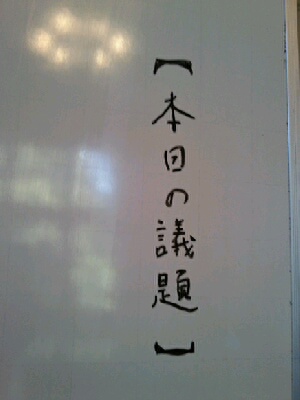 【本日の議題】